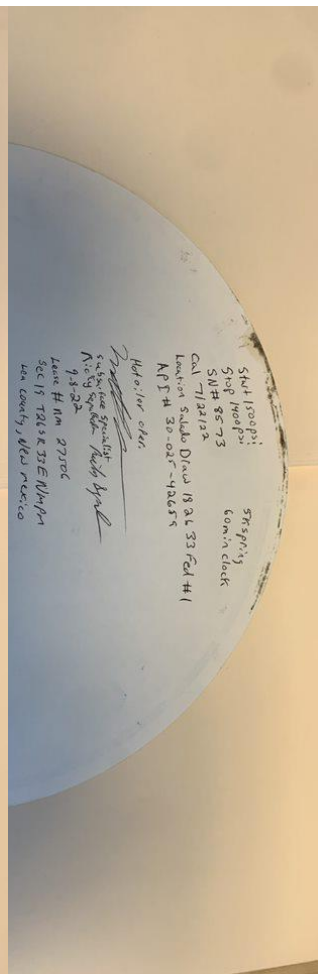 Start 1500psi
Stop 1400psi
SN# 8573
Cal 7/22/22
5K spring
60 min clock
Location Salado Draw 18 26 33 Fed #1
API# 30-025-42659
Hot oiler oper.
Subsurface Specialist
Ricky
9-8-22
Lease # NM 27506
Sec 19 T26S R33E N/mpm
Lea County, New Mexico